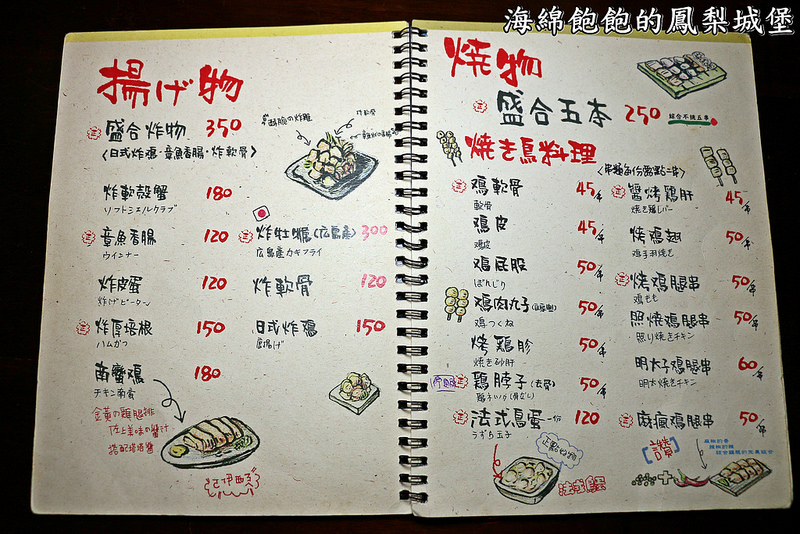 海綿飽飽的鳳梨城堡
揚げ物
盛合炸物 350
(日式炸雞・章魚香腸・炸軟骨)
炸軟殼蟹 180
ソフトシェルクラブ
章魚香腸 120
ウインナー
炸牡蠣(広島產) 300
広島産カキフライ
炸皮蛋 120
揚げピータン
炸軟骨 120
炸厚培根 150
ハムかつ
日式炸鷄 150
唐揚げ
南蠻鷄 180
チキン南蛮
金黃の雞腿排
佐上美味の醬汁
搭配塔塔醬
燒物
盛合五本 250
綜合不挑五串
焼き鳥料理
鷄軟骨 45/串
軟骨
鷄皮 45/串
鷄皮
鷄屁股 50/串
ぼんじり
鷄肉丸子 50/串
鷄つくね
烤鷄胗 50/串
焼き砂肝
鷄脖子(去骨) 50/串
法式鳥蛋 一份 120
うずら玉子
正點口物
醬烤鷄肝 45/串
焼き鷄レバー
烤鷄翅 50/串
鷄手羽焼き
烤鷄腿串 50/串
鷄もも
照燒鷄腿串 50/串
照り焼きチキン
明太子鷄腿串 60/串
明太焼きチキン
麻瘋鷄腿串 50/串
[讚]